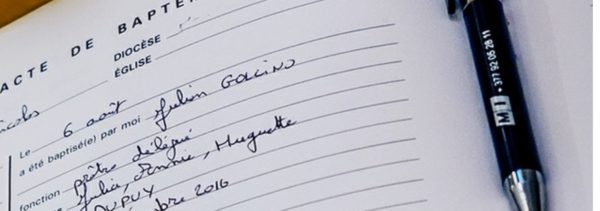 ACTE DE BAPTÊ
DIOCÈSE
ÉGLISE
Le 6 août
a été baptisé(e) par moi Julien GOLLINO
fonction prêtre délégué
Julia, Annie, Huguette
DUPUY
bre 2016
MI +377 92 05 28 11